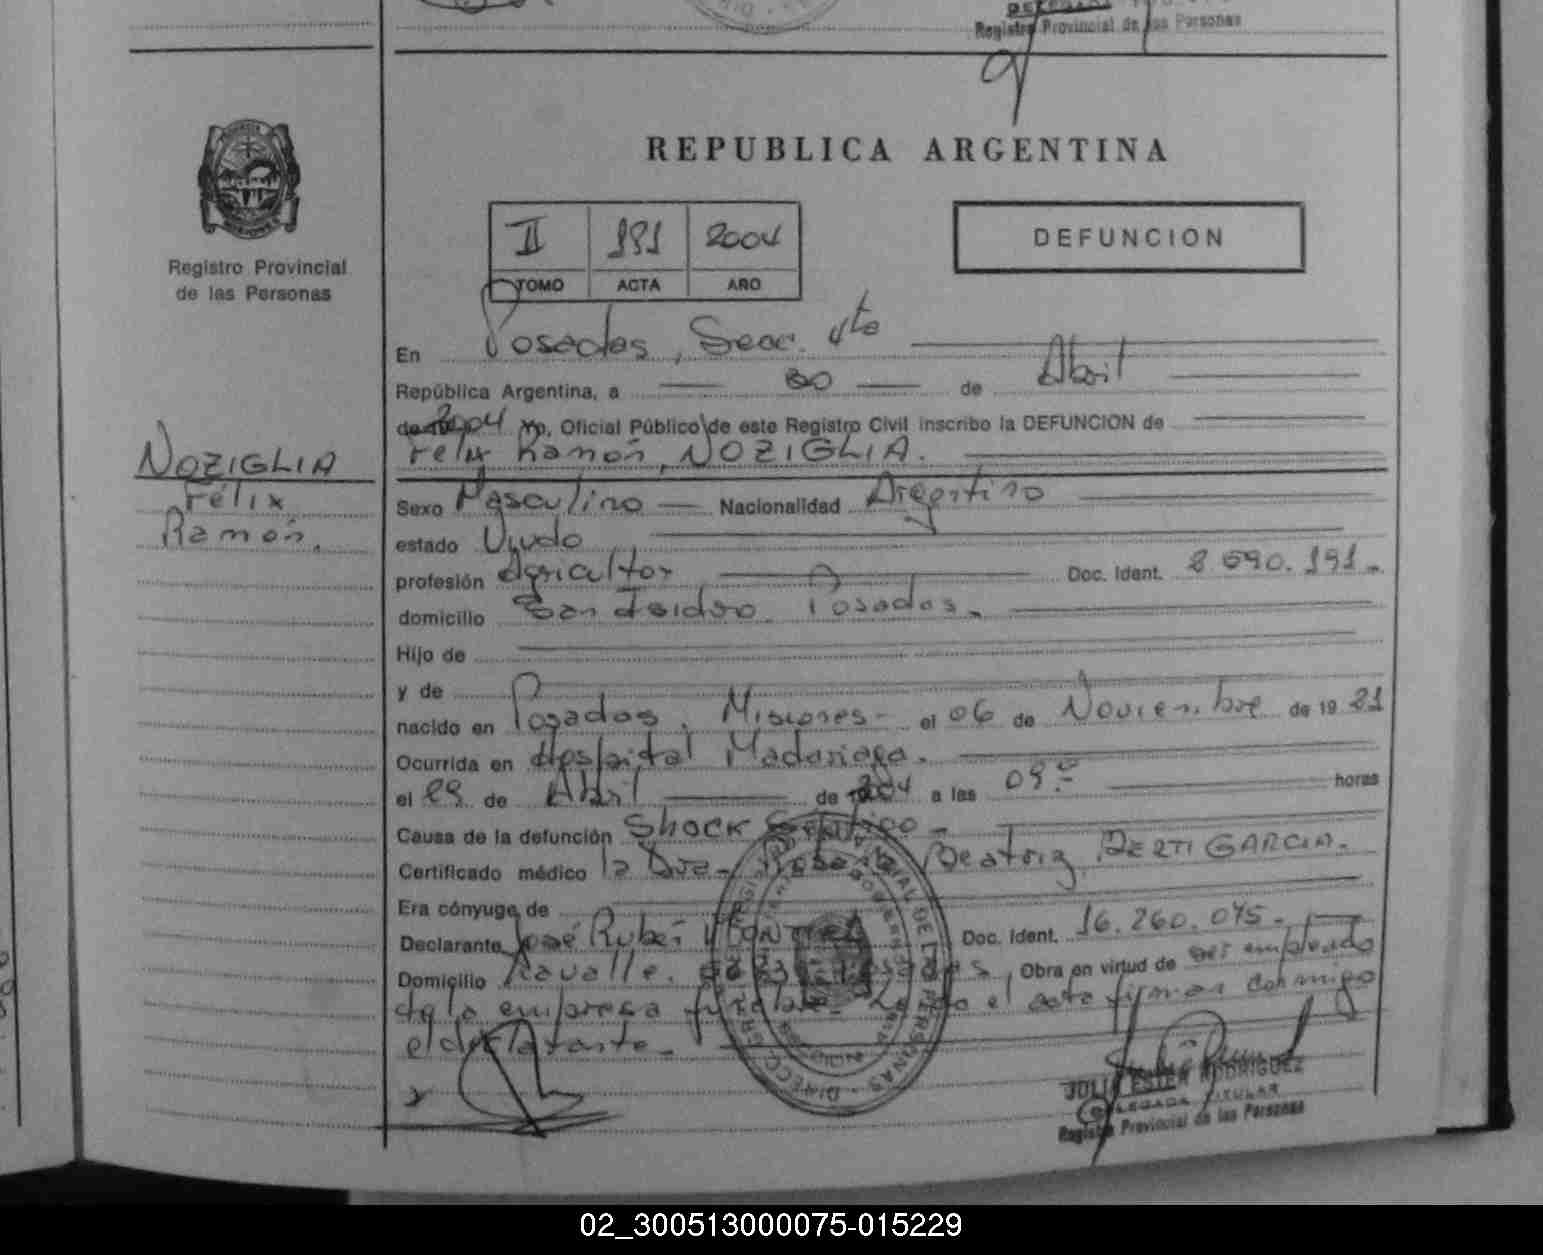 Registro Provincial de las Personas
REPUBLICA ARGENTINA
Registro Provincial
de las Personas
II 191 2004
TOMO ACTA AÑO
DEFUNCION
En Posadas, Secc. 4ta
República Argentina, a 30 de Abril
de 2004 Yo, Oficial Público de este Registro Civil inscribo la DEFUNCION de
Félix Ramón, NOZIGLIA.
NOZIGLIA
Félix
Ramón.
Sexo Masculino Nacionalidad Argentino
estado Viudo
profesión Agricultor Doc. Ident. 191.
domicilio San Isidro. Posadas.
Hijo de
y de
nacido en Posadas, Misiones- el 06 de Noviembre de 19
Ocurrida en Hospital Madariaga.
el 29 de Abril de 2004 a las horas
Causa de la defunción Shock Séptico -
Certificado médico la Dra. Beatriz GARCIA.
Era cónyuge de
Declarante José Rubén Doc. Ident. 16.260.075-
Domicilio Obra en virtud de ser empleado
de la empresa el acta firman conmigo
el declarante.-
JULIA ESTER RODRIGUEZ
DELEGADA TITULAR
Registro Provincial de las Personas
02_300513000075-015229